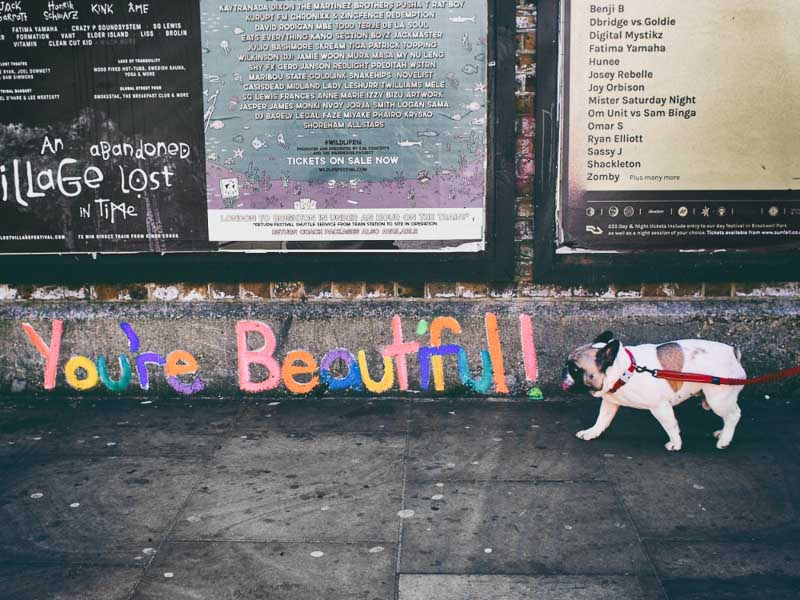 HENRIK SCHWARZ
KINK
ÂME
FATIMA YAMAHA CRAZY P SOUNDSYSTEM - SG LEWIS
FORMATION VANT ELDER ISLAND LISS BROLIN
VITAMIN CLEAN CUT KID
An abandoned
village lost
in time
KAYTRANADA DIXON THE MARTINEZ BROTHERS PUSHA T RAT BOY
KURUPT FM CHRONIXX & ZINCFENCE REDEMPTION
DAVID RODIGAN MBE TODD TERJE DE LA SOUL
EATS EVERYTHING KANO SECTION BOYZ JACKMASTER
JULIO BASHMORE SKREAM TIGA PATRICK TOPPING
WILKINSON DJ JAMIE WOON MURA MASA MY NU LENG
SHY FX GERD JANSON REDLIGHT PREDITAH WSTRN
MARIBOU STATE GOLDLINK SNAKEHIPS NOVELIST
CASISDEAD MIDLAND LADY LESHURR TWILLIAMS MELE
SG LEWIS FRANCES ANNE MARIE IZZY BIZU ARTWORK
JASPER JAMES MONKI NVOY JORJA SMITH LOGAN SAMA
DJ BARELY LEGAL FAZE MIYAKE PHAROAH KRYSKO
SHOREHAM ALLSTARS
#WILDLIFE16
TICKETS ON SALE NOW
LONDON TO BRIGHTON IN UNDER AN HOUR ON THE TRAIN*
*RETURN FESTIVAL SHUTTLE SERVICE FROM TRAIN STATION TO SITE IN OPERATION
RETURN COACH PACKAGES ALSO AVAILABLE
Benji B
Dbridge vs Goldie
Digital Mystikz
Fatima Yamaha
Hunee
Josey Rebelle
Joy Orbison
Mister Saturday Night
Om Unit vs Sam Binga
Omar S
Ryan Elliott
Sassy J
Shackleton
Zomby Plus many more
You're Beautiful!